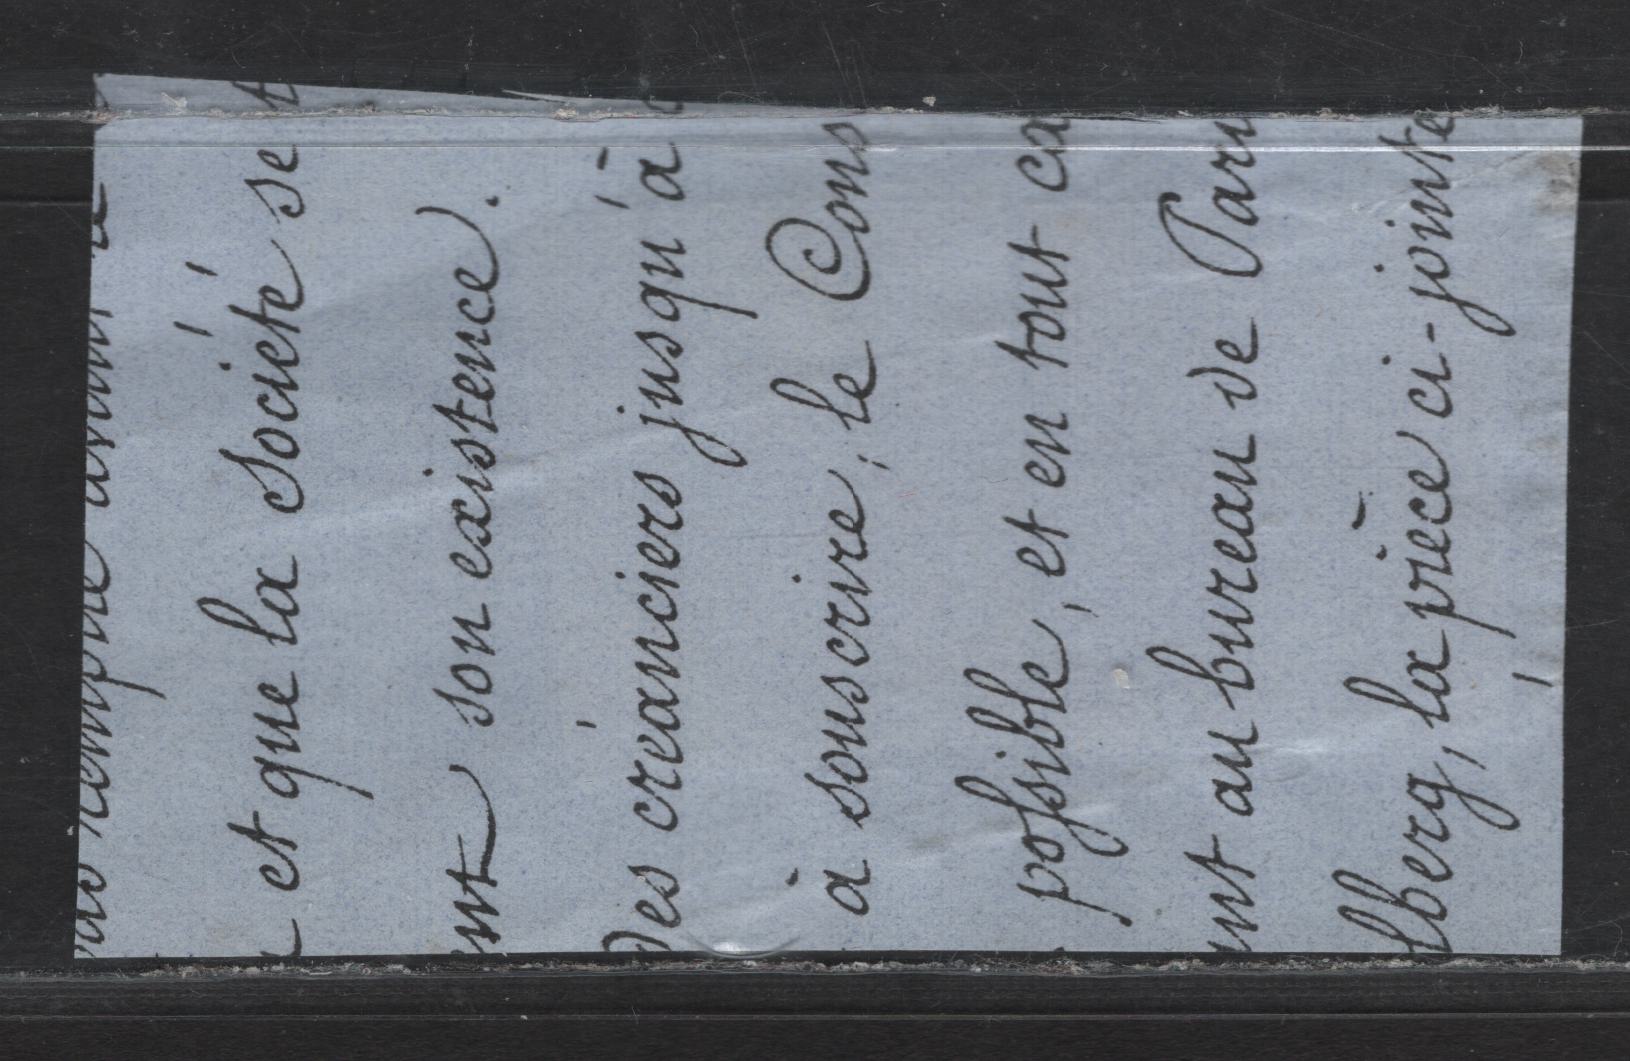 pas remplie avant
et que la société se
son existence).
des créanciers jusqu'à
à souscrire; le Cons
possible, et en tout ca
au bureau de Pari
lberg, la pièce ci-jointe